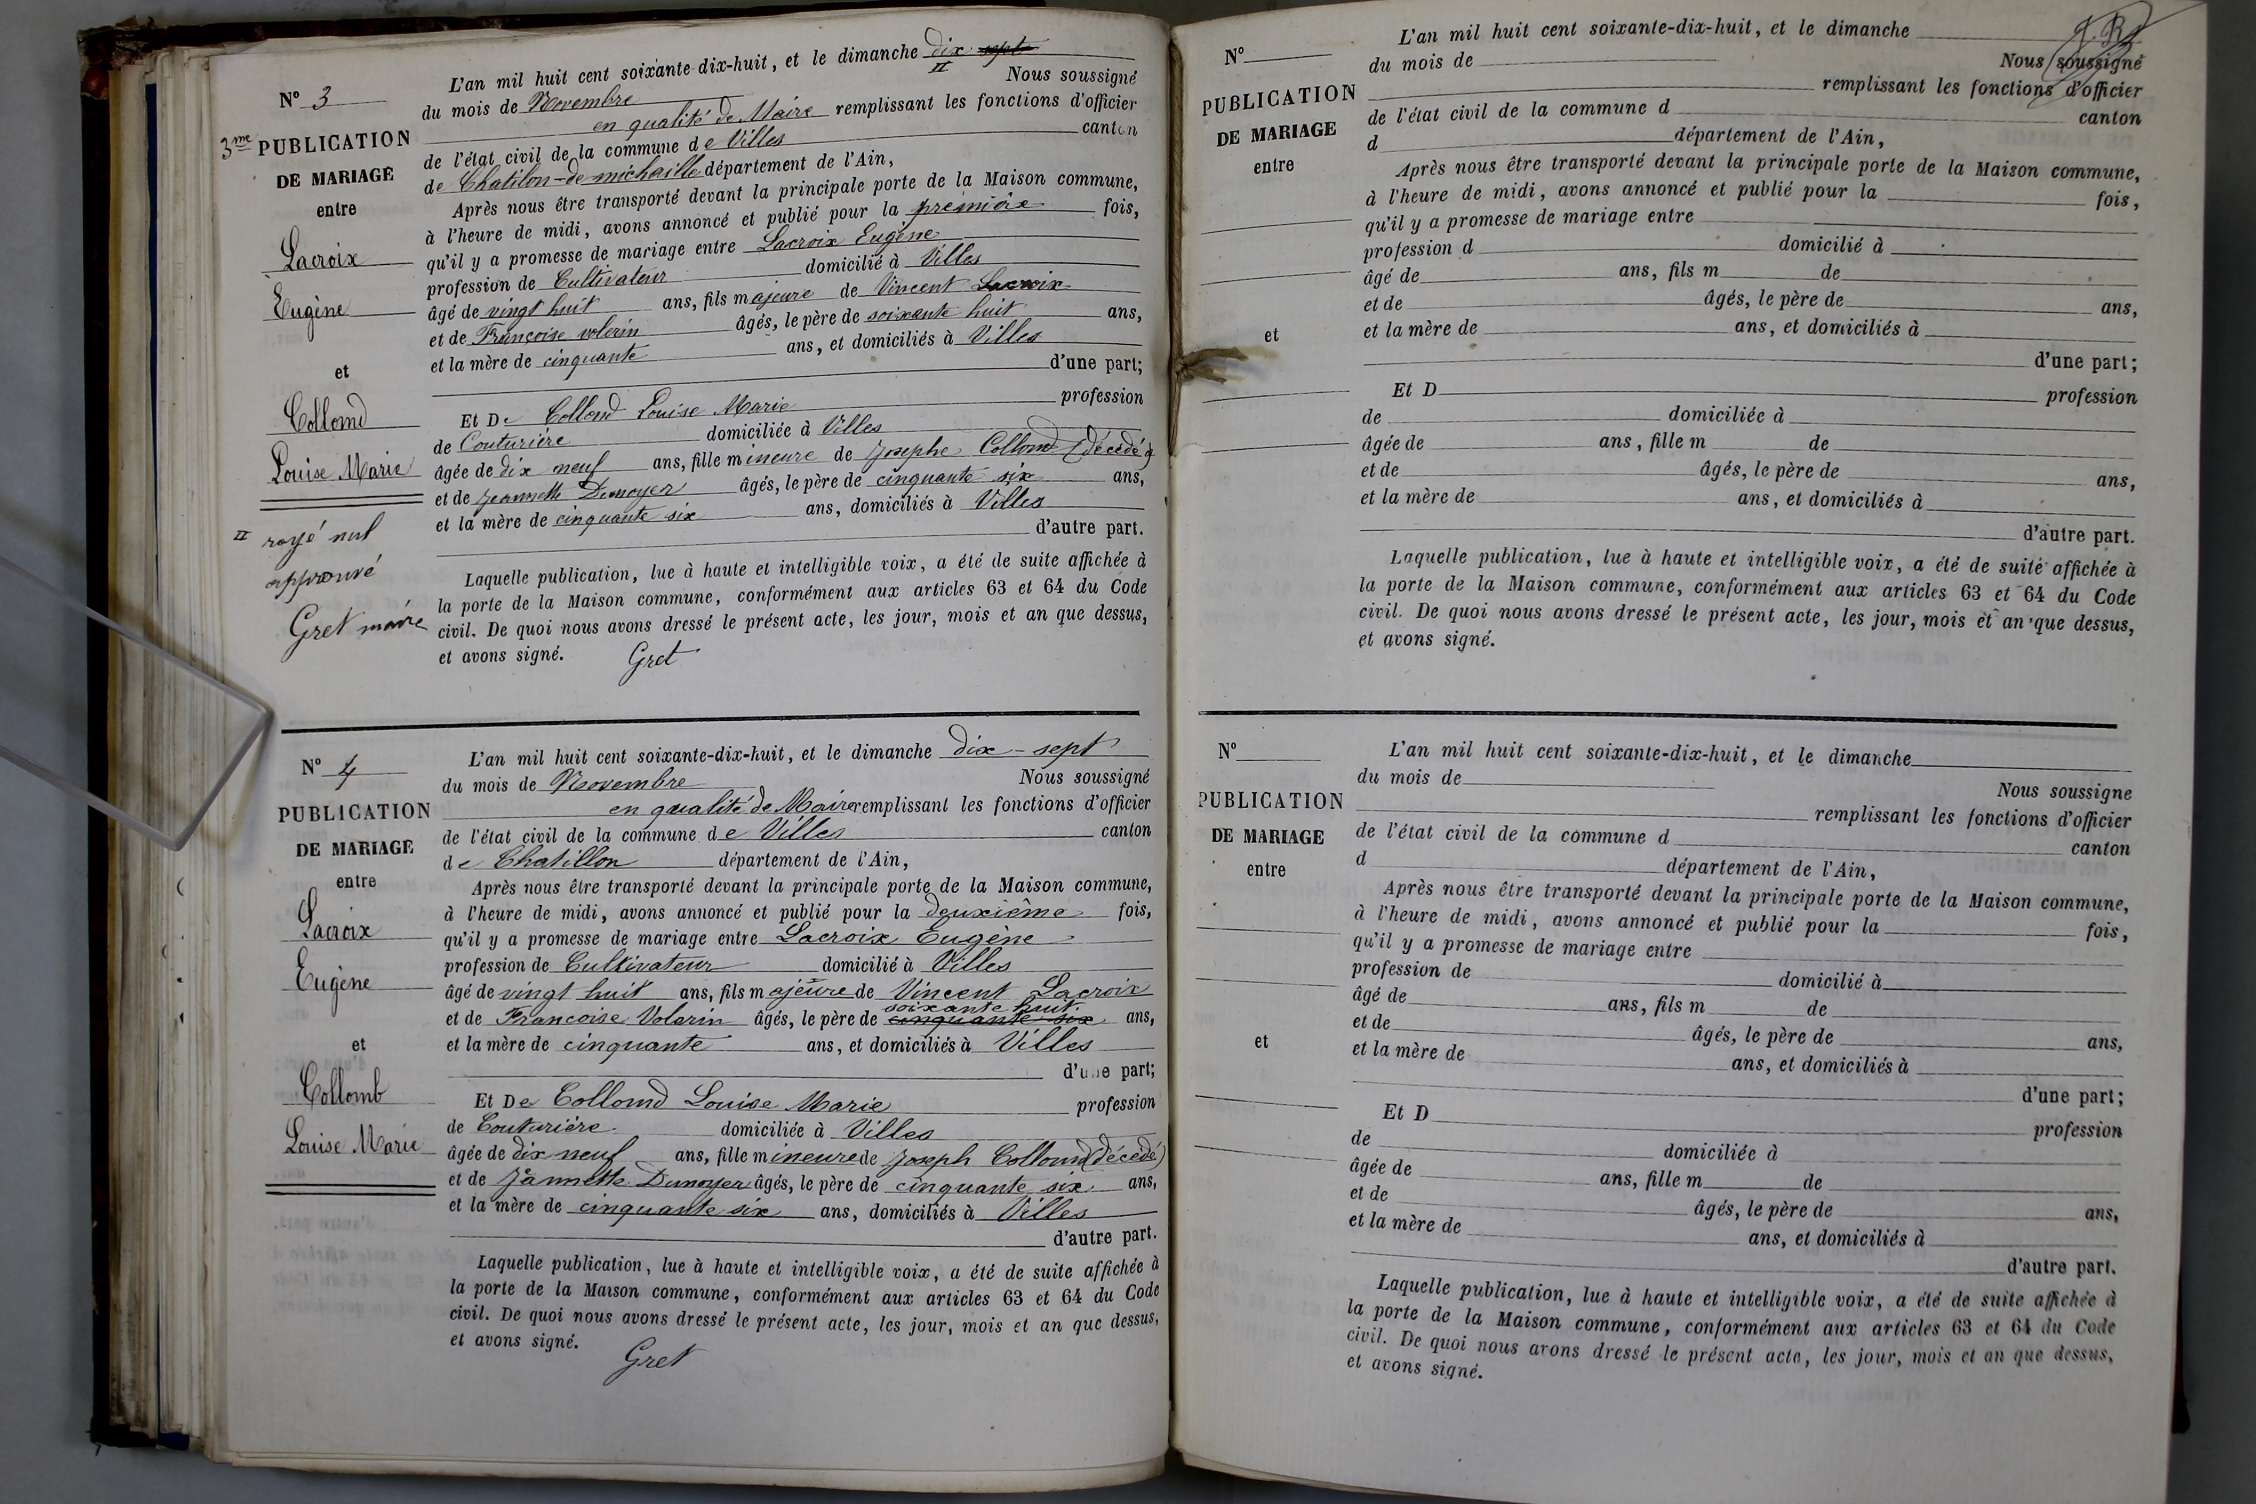 L'an mil huit cent soixante-dix-huit, et le dimanche dix sept
II
N° 3
du mois de Novembre Nous soussigné
en qualité de Maire remplissant les fonctions d'officier
3me PUBLICATION
DE MARIAGE
entre
Lacroix
Eugène
et
Collomd
Louise Marie
II rayé nul
approuvé
Gret maire
de l'état civil de la commune de Villes canton
de Chatilon-de-michaille département de l'Ain,
Après nous être transporté devant la principale porte de la Maison commune,
à l'heure de midi, avons annoncé et publié pour la première fois,
qu'il y a promesse de mariage entre Lacroix Eugène
profession de Cultivateur domicilié à Villes
âgé de vingt huit ans, fils majeure de Vincent Lacroix
et de Françoise volerin âgés, le père de soixante huit ans,
et la mère de cinquante ans, et domiciliés à Villes
d'une part;
Et De Collomd Louise Marie profession
de Couturière domiciliée à Villes
âgée de dix neuf ans, fille mineure de Josephe Collomd (décédé)
et de Jeannette Dunoyer âgés, le père de cinquante six ans,
et la mère de cinquante six ans, domiciliés à Villes
d'autre part.
Laquelle publication, lue à haute et intelligible voix, a été de suite affichée à
la porte de la Maison commune, conformément aux articles 63 et 64 du Code
civil. De quoi nous avons dressé le présent acte, les jour, mois et an que dessus,
et avons signé. Gret
N° 4
PUBLICATION
DE MARIAGE
entre
Lacroix
Eugène
et
Collomb
Louise Marie
L'an mil huit cent soixante-dix-huit, et le dimanche dix-sept
du mois de Novembre Nous soussigné
en qualité de Maire remplissant les fonctions d'officier
de l'état civil de la commune de Villes canton
de Chatillon département de l'Ain,
Après nous être transporté devant la principale porte de la Maison commune,
à l'heure de midi, avons annoncé et publié pour la deuxième fois,
qu'il y a promesse de mariage entre Lacroix Eugène
profession de Cultivateur domicilié à Villes
âgé de vingt huit ans, fils majeure de Vincent Lacroix
soixante huit
et de Francoise Volerin âgés, le père de cinquante six ans,
et la mère de cinquante ans, et domiciliés à Villes
d'une part;
Et De Collomd Louise Marie profession
de Couturière domiciliée à Villes
âgée de dix neuf ans, fille mineure de Joseph Collomd (décédé)
et de Jannette Dunoyer âgés, le père de cinquante six ans,
et la mère de cinquante six ans, domiciliés à Villes
d'autre part.
Laquelle publication, lue à haute et intelligible voix, a été de suite affichée à
la porte de la Maison commune, conformément aux articles 63 et 64 du Code
civil. De quoi nous avons dressé le présent acte, les jour, mois et an que dessus,
et avons signé.
Gret
N°
PUBLICATION
DE MARIAGE
entre
et
L'an mil huit cent soixante-dix-huit, et le dimanche
du mois de Nous soussigné
remplissant les fonctions d'officier
de l'état civil de la commune d canton
d département de l'Ain,
Après nous être transporté devant la principale porte de la Maison commune,
à l'heure de midi, avons annoncé et publié pour la fois,
qu'il y a promesse de mariage entre
profession d domicilié à
âgé de ans, fils m de
et de âgés, le père de ans,
et la mère de ans, et domiciliés à
d'une part;
Et D profession
de domiciliée à
âgée de ans, fille m de
et de âgés, le père de ans,
et la mère de ans, et domiciliés à
d'autre part.
Laquelle publication, lue à haute et intelligible voix, a été de suite affichée à
la porte de la Maison commune, conformément aux articles 63 et 64 du Code
civil. De quoi nous avons dressé le présent acte, les jour, mois et an que dessus,
et avons signé.
N°
PUBLICATION
DE MARIAGE
entre
et
L'an mil huit cent soixante-dix-huit, et le dimanche
du mois de Nous soussigne
remplissant les fonctions d'officier
de l'état civil de la commune d canton
d département de l'Ain,
Après nous être transporté devant la principale porte de la Maison commune,
à l'heure de midi, avons annoncé et publié pour la fois,
qu'il y a promesse de mariage entre
profession de domicilié à
âgé de ans, fils m de
et de âgés, le père de ans,
et la mère de ans, et domiciliés à
d'une part;
Et D profession
de domiciliée à
âgée de ans, fille m de
et de âgés, le père de ans,
et la mère de ans, et domiciliés à
d'autre part.
Laquelle publication, lue à haute et intelligible voix, a été de suite affichée à
la porte de la Maison commune, conformément aux articles 63 et 64 du Code
civil. De quoi nous avons dressé le présent acte, les jour, mois et an que dessus,
et avons signé.